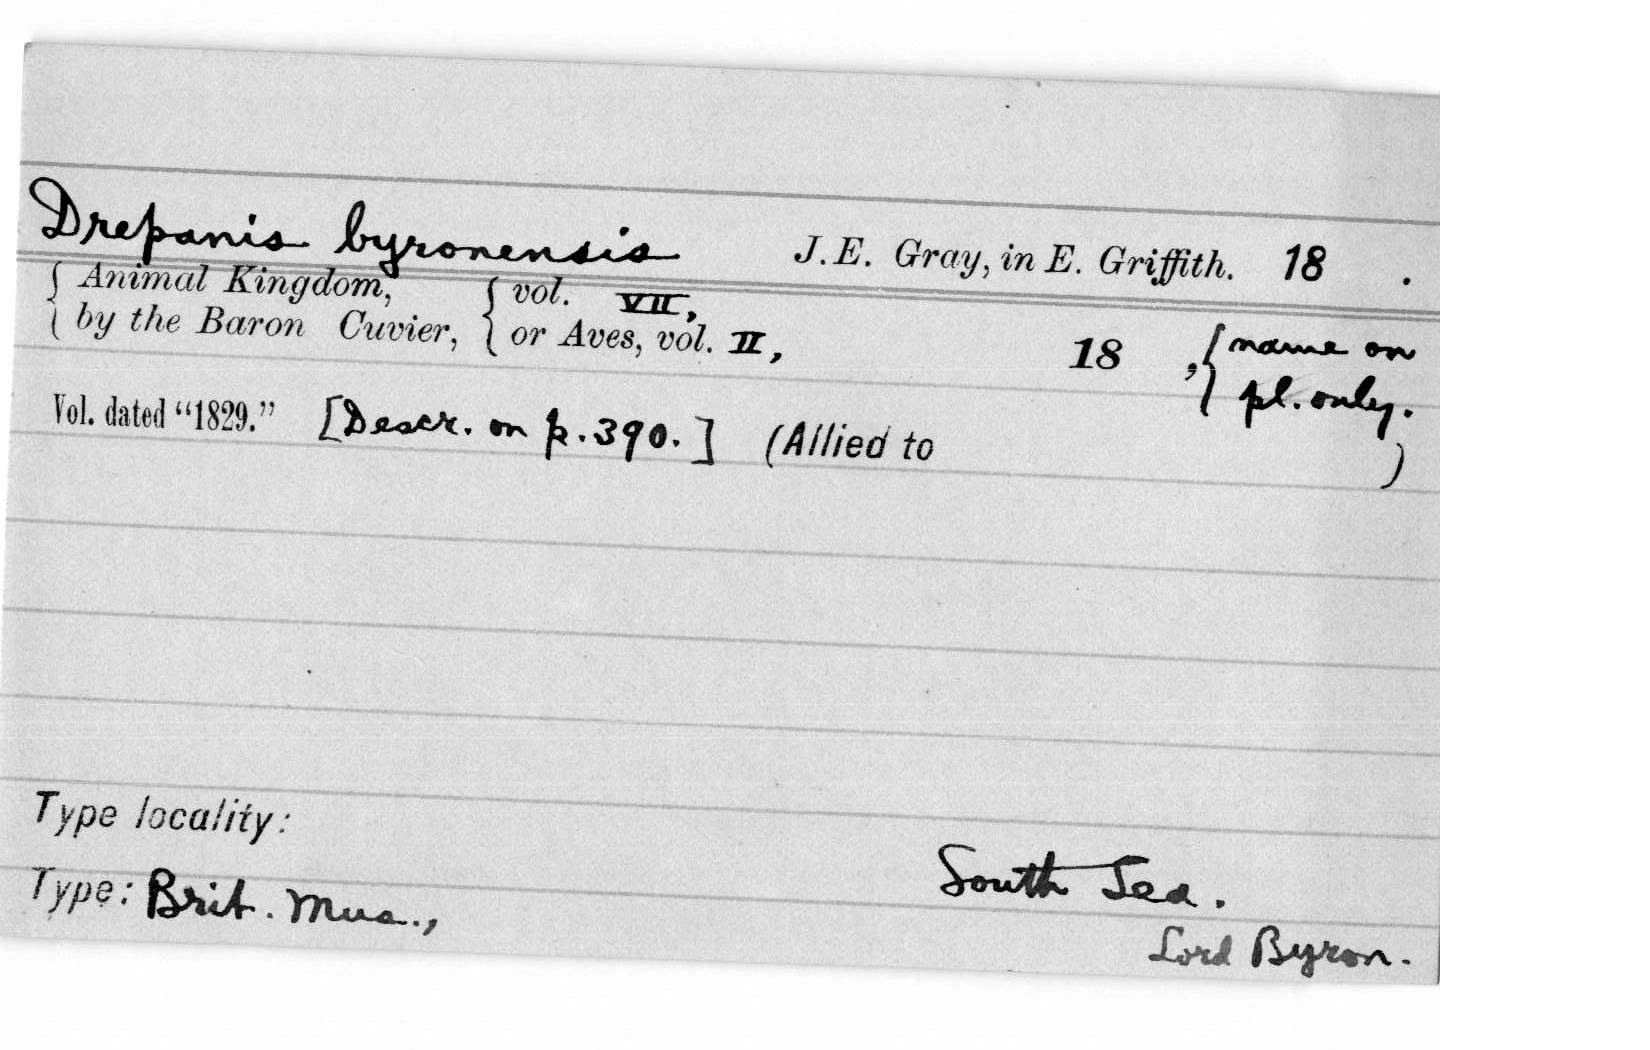 Drepanis byronensis J.E. Gray, in E. Griffith. 18 .
{ Animal Kingdom, { vol. VII,
{ by the Baron Cuvier, { or Aves, vol. II, 18 , { name on
pl. only.
Vol. dated “1829.” [Descr. on p. 390.] (Allied to )
Type locality:
South Sea.
Type: Brit. Mus.,
Lord Byron.